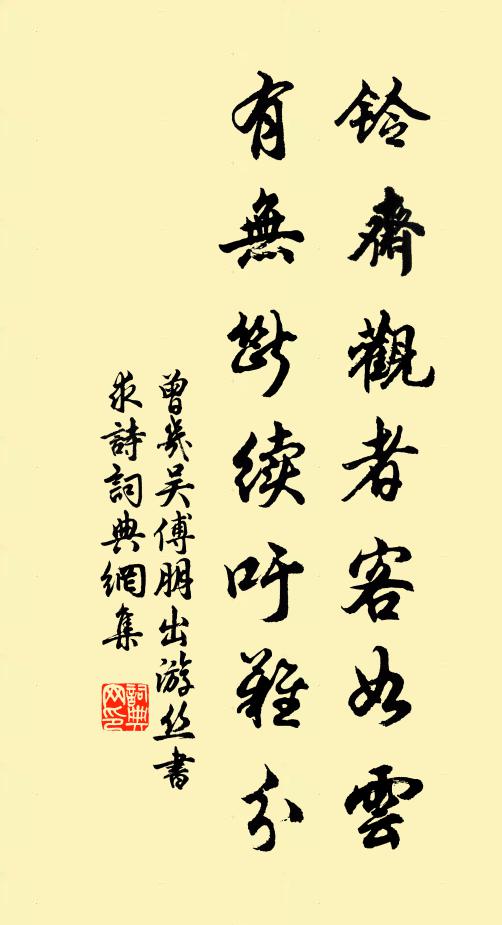 鈴齋觀者客如雲
有無斷续吁難分
曾幾吴傅朋出游丝書
求詩詞典網集
詞典网印